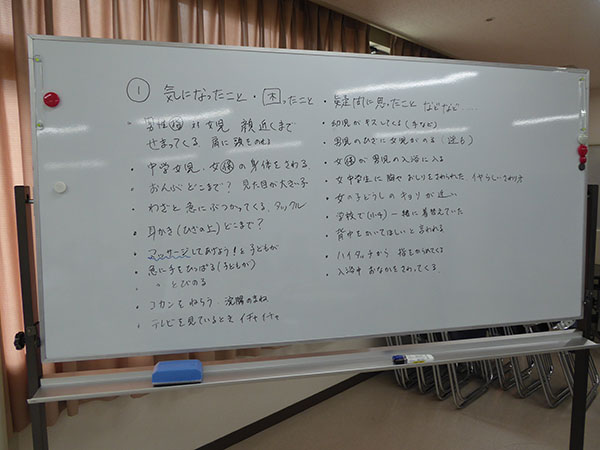 ① 気になったこと・困ったこと・疑問に思ったこと などなど.....
・男性職 対 女児 顔近くまで
せまってくる 肩に頭をのせる
・中学女児、女職の身体をさわる
・おんぶどこまで？ 見た目が大きい子
・わざと急にぶつかってくる、タックル
・耳かき(ひざの上)どこまで？
・マッサージしてあげよう！と子どもが
・急に手をひっぱる(子どもが)
・〃 とびのる
・コカンをねらう 浣腸のまね
・テレビを見ているとき イチャイチャ
・幼児がキスしてくる(手など)
・男児のひざに女児がのる(逆も)
・女職が男児の入浴に入る
・女中学生に胸やおしりをさわられた イヤらしいさわり方
・女の子どうしのキョリが近い
・学校で(小4)一緒に着替えていた
・背中をかいてほしいと言われる
・ハイタッチから 指をからめてくる
・入浴中おなかをさわってくる